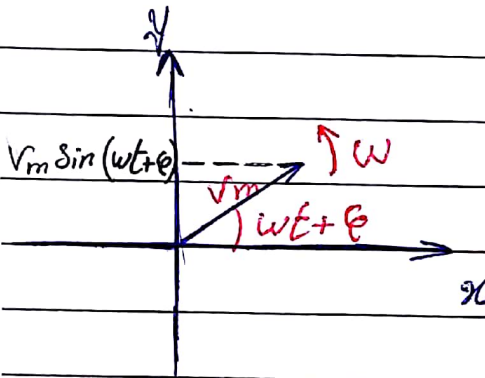 y
Vm Sin (wt+φ)
Vm
w
wt+φ
x